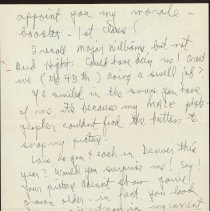 appoint you my morale
booster - 1st class!
I recall Major Williams, but not
Bud Hight. Could have been me! And
we (2nd 45th) doing a swell job?
If I smiled in the snap you have
of me its because my MALE photo-
grapher couldn't find the button to
snap my picture.
Lois, do you teach in Denver this
year? Would you surprise me! Say!
Your picture doesn't show you've
grown older. in fact, you look
my current